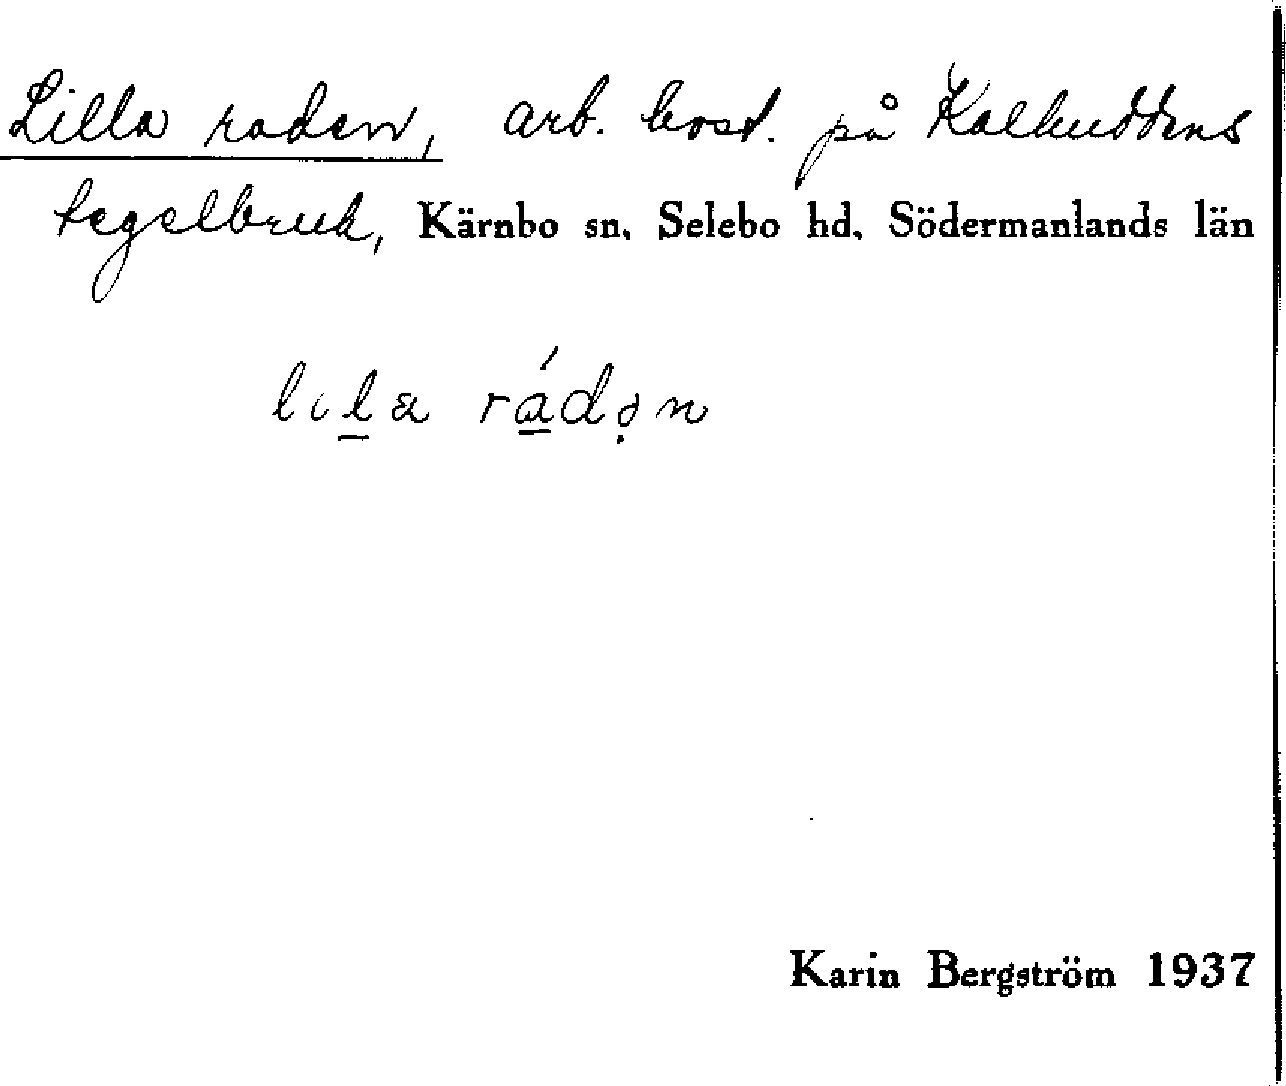 Lilla raden, arb. bost. på Kalkuddens
tegelbruk, Kärnbo sn, Selebo hd, Södermanlands län
lila rádən
Karin Bergström 1937